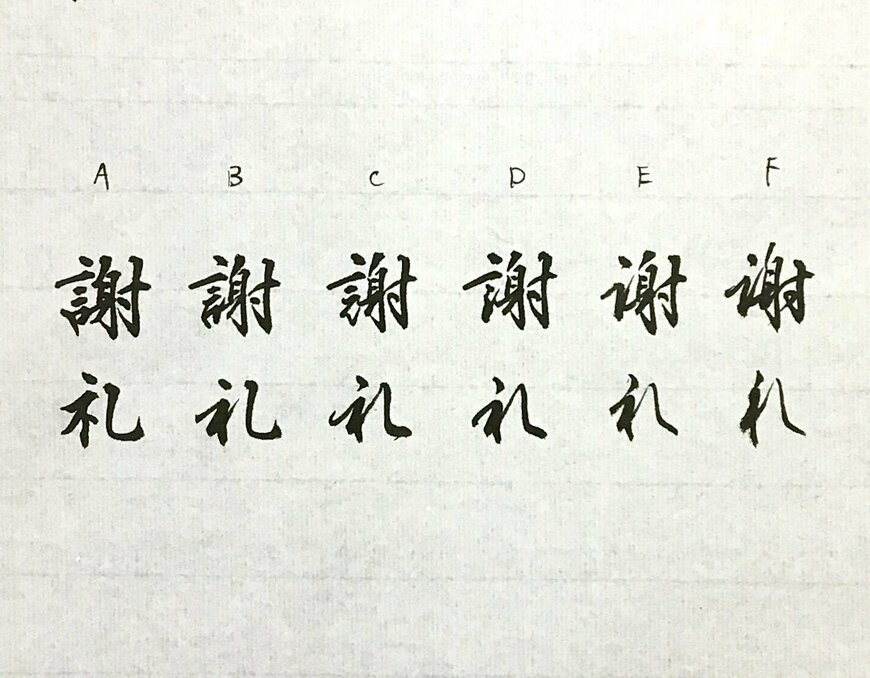 A B C D E F
謝 謝 謝 謝 谢 谢
礼 礼 礼 礼 礼 礼